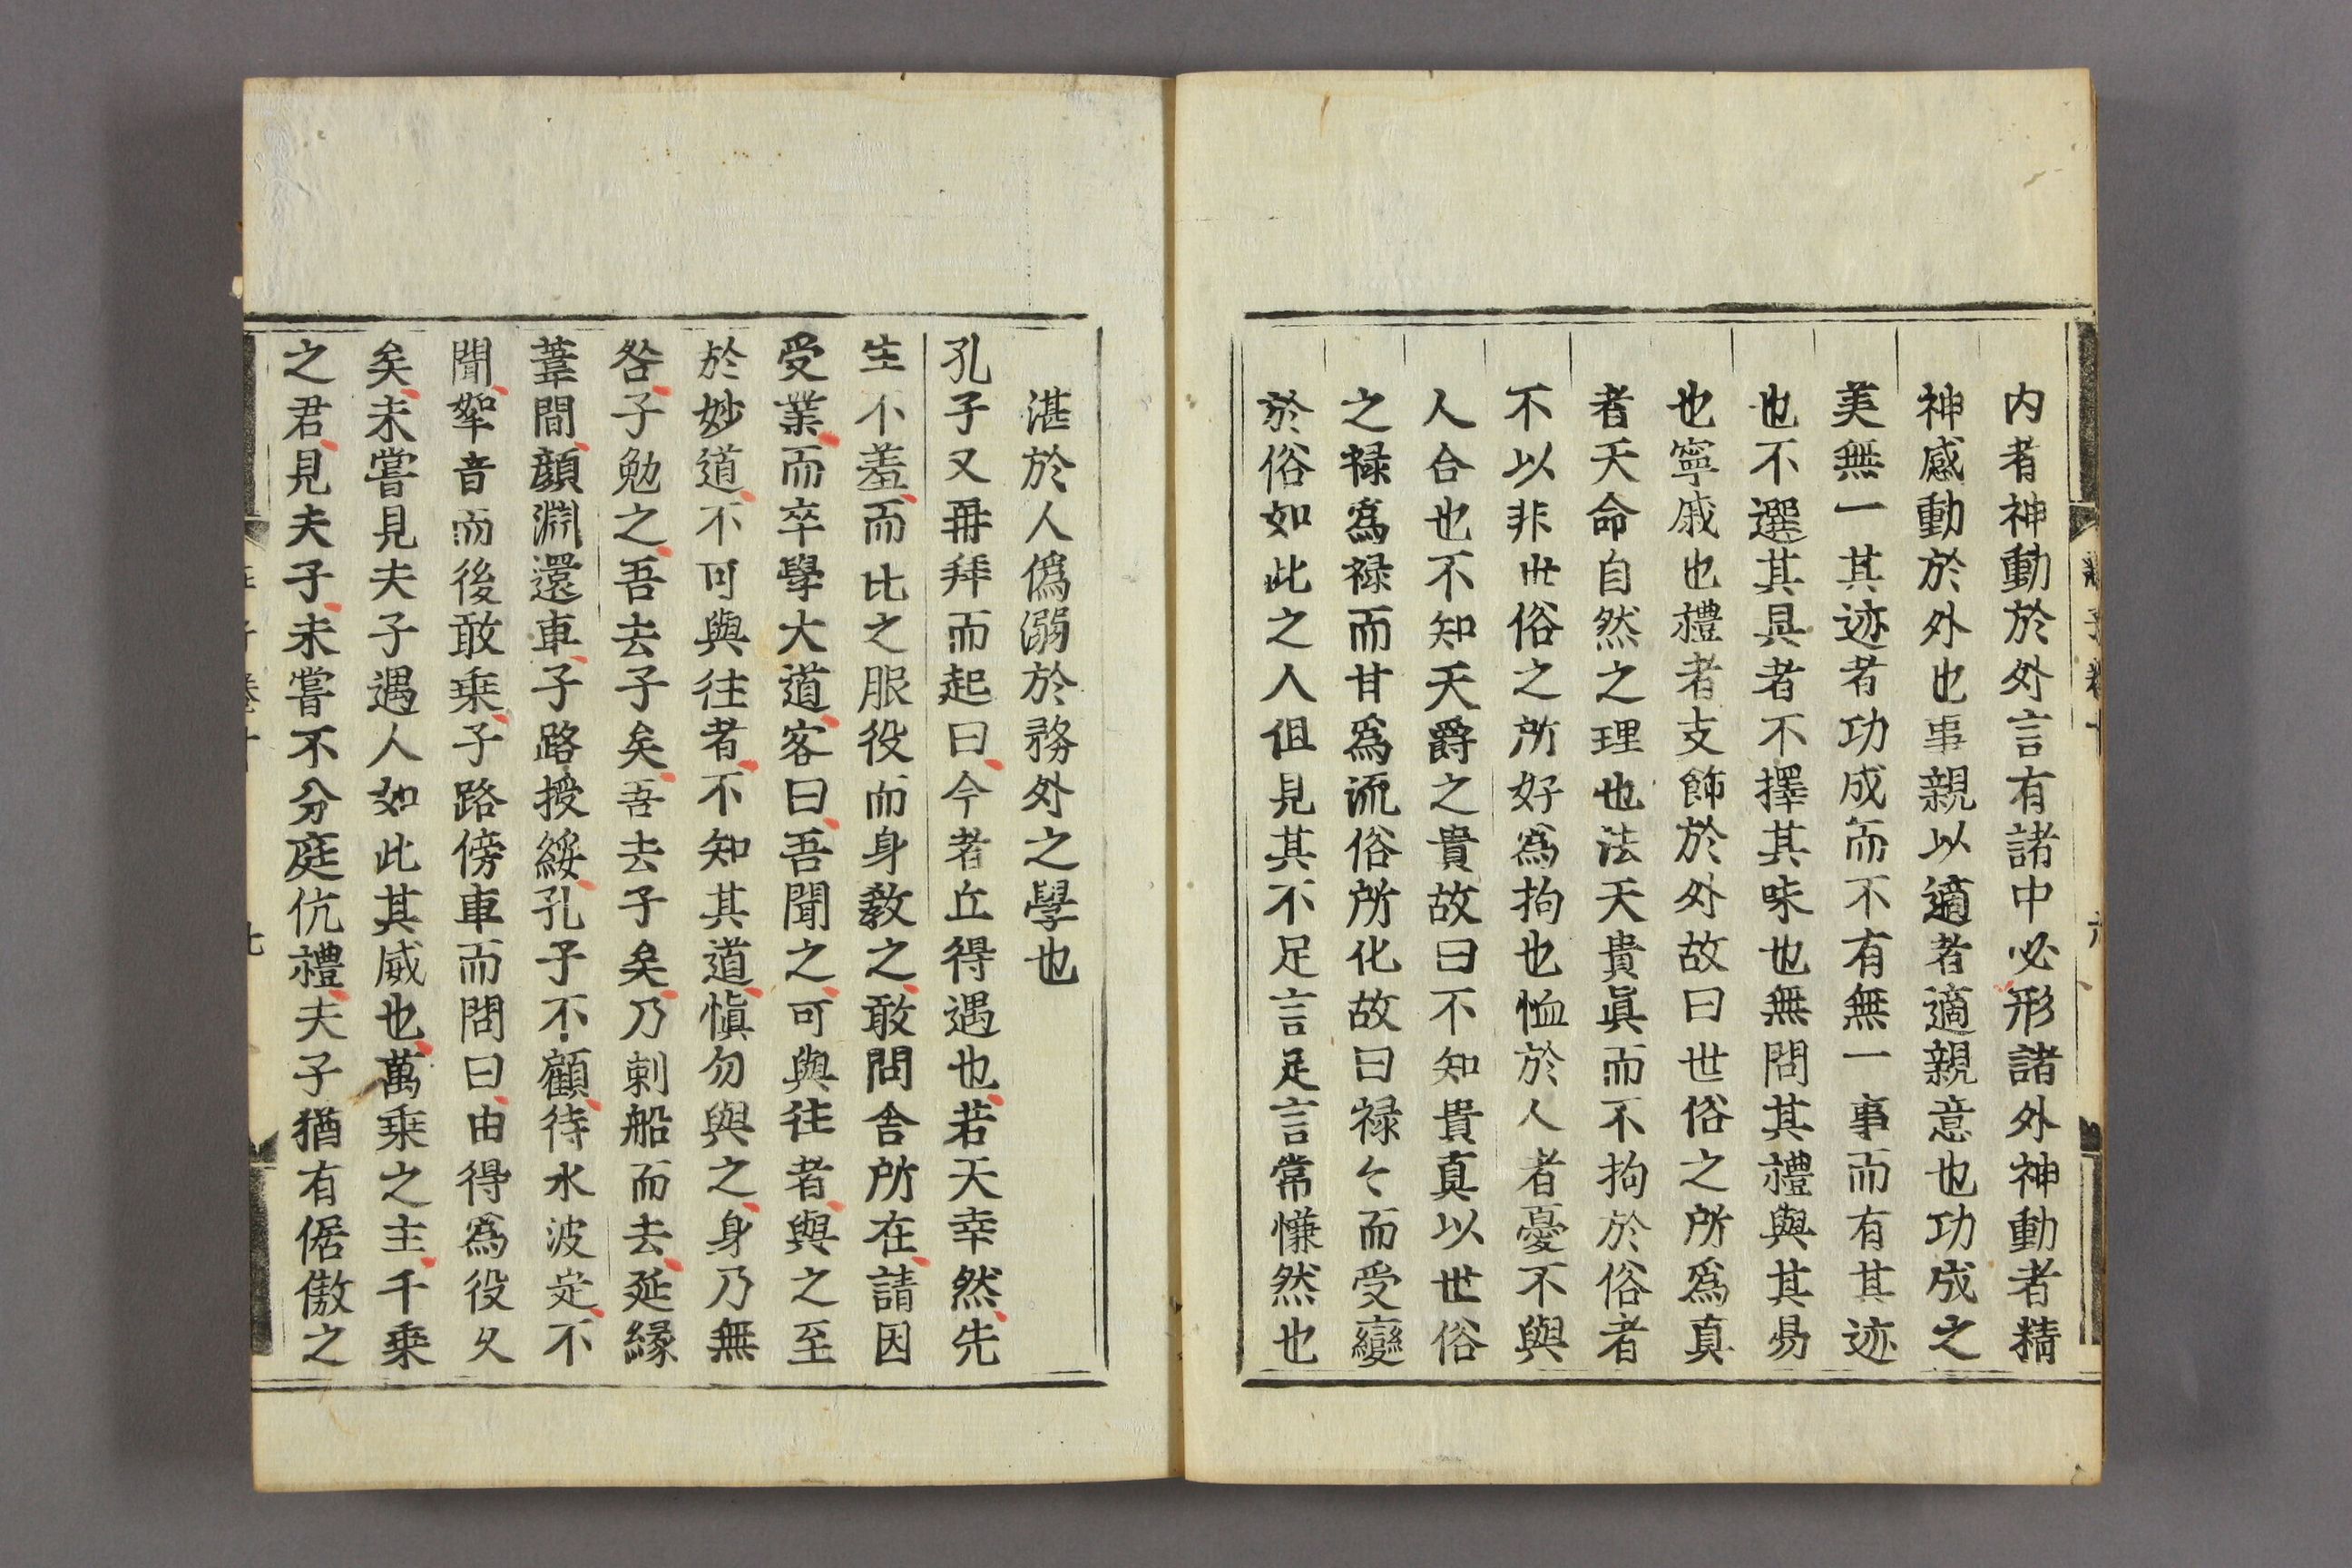 内者神動於外言有諸中必形諸外神動者精
神感動於外也事親以適者適親意也功成之
美無一其迹者功成而不有無一事而有其迹
也不選其具者不擇其味也無問其禮與其易
也寧戚也禮者文飾於外故曰世俗之所爲真
者天命自然之理也法天貴眞而不拘於俗者
不以非世俗之所好爲拘也恤於人者憂不與
人合也不知天爵之貴故曰不知貴真以世俗
之禄爲禄而甘爲流俗所化故曰禄々而受變
於俗如此之人但見其不足言足言常慊然也
湛於人僞溺於務外之學也
孔子又再拜而起曰今者丘得遇也若天幸然先
生不羞而比之服役而身教之敢問舍所在請因
受業而卒學大道客曰吾聞之可與往者與之至
於妙道不可與往者不知其道愼勿與之身乃無
咎子勉之吾去子矣吾去子矣乃剌船而去延緣
葦間顔淵還車子路授綏孔子不顧待水波定不
聞拏音而後敢乗子路傍車而問曰由得爲役久
矣未嘗見夫子遇人如此其威也萬乗之主千乗
之君見夫子未嘗不分庭伉禮夫子猶有倨傲之